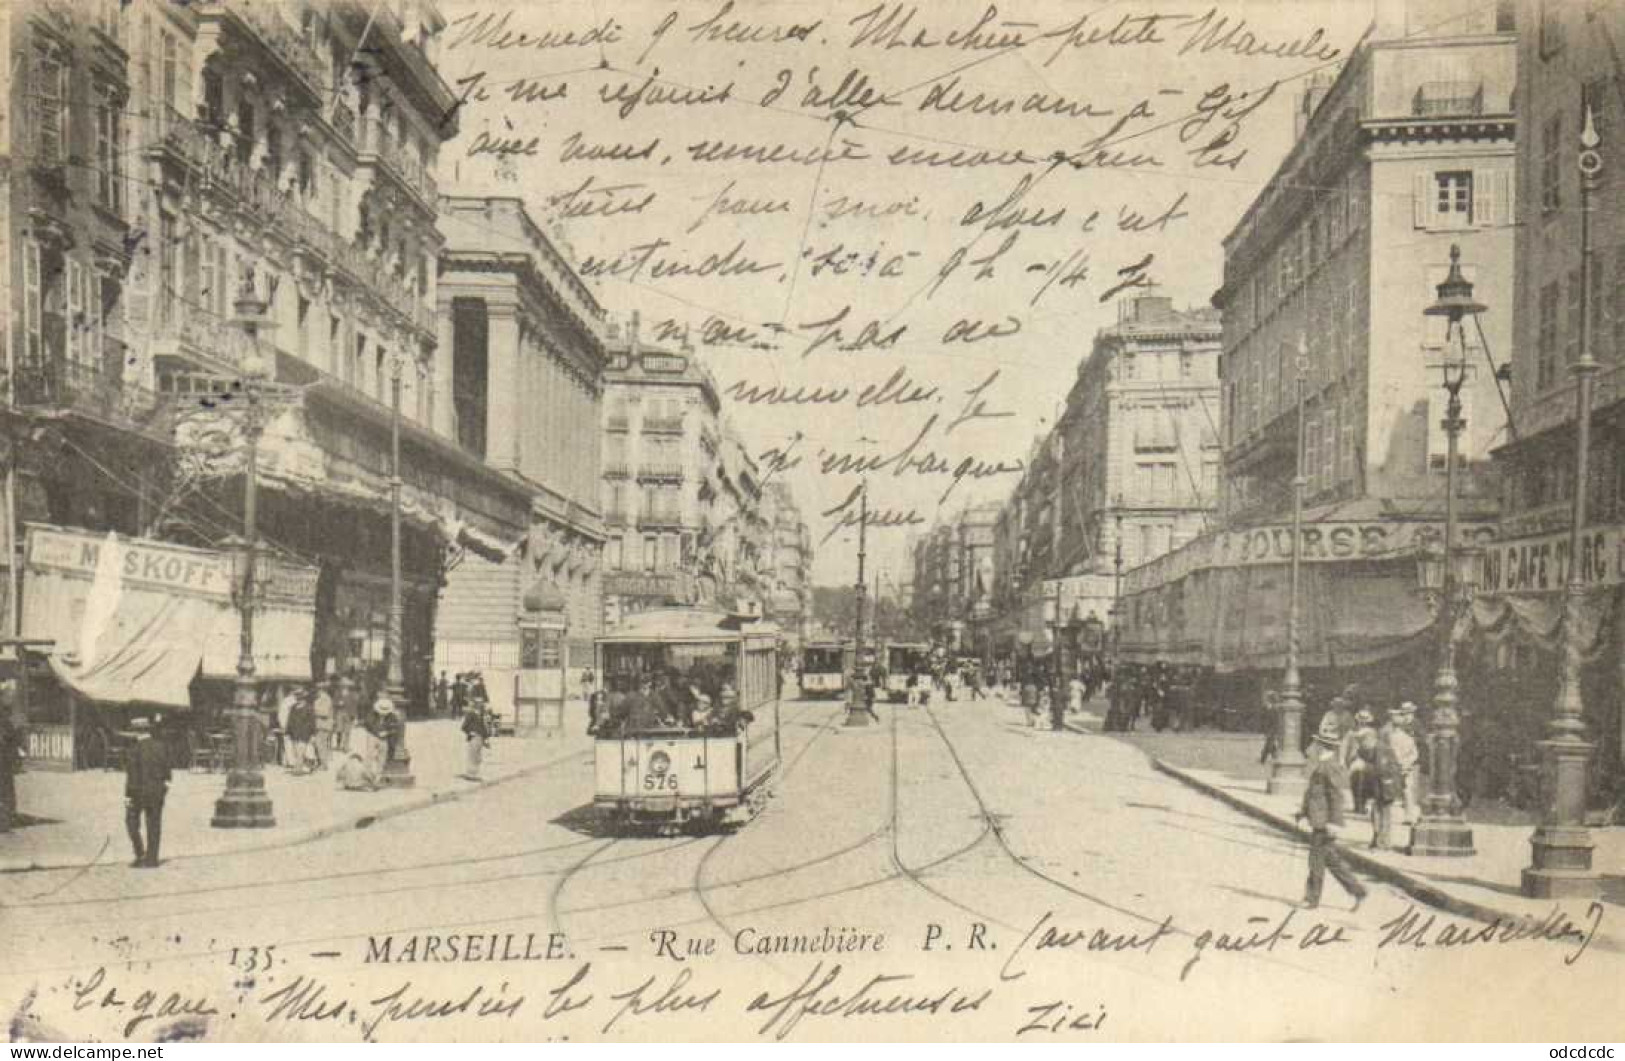 Mercredi 9 heures. Ma chère petite Marcelle
Je me réjouis d'aller demain à Gif
avec vous, remercie encore bien les
tiens pour moi, alors c'est
entendu, soi à 9 h -1/4 Je
n'ai pas de
nouvelles. Je
m'embarque
pour
MOSKOFF
BOURSE
CAFE TURC
RHUM
576
135. — MARSEILLE. — Rue Cannebière P. R. (avant goût de Marseille)
la gare. Mes pensées les plus affectueuses
Zizi
odcdcdc